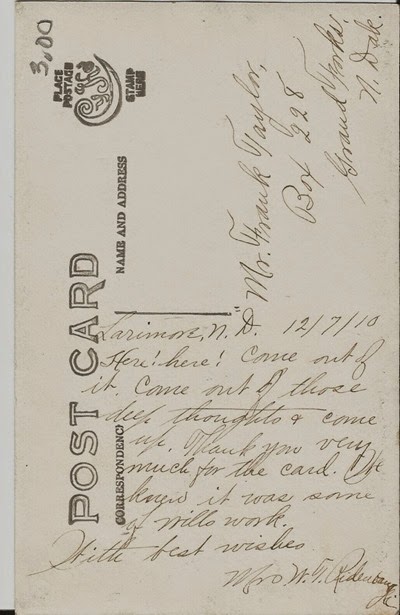 3.00
PLACE
POSTAGE
STAMP
HERE
POST CARD
NAME AND ADDRESS
CORRESPONDENCE
Mr. Frank Taylor,
Box 228
Grand Forks,
N. Dak.
Larimore, N. D. 12/7/10
Here! here! Come out of
it. Come out of those
deep thoughts & come
up. Thank you very
much for the card. We
knew it was some
of Wills work.
With best wishes
Mrs W. T.